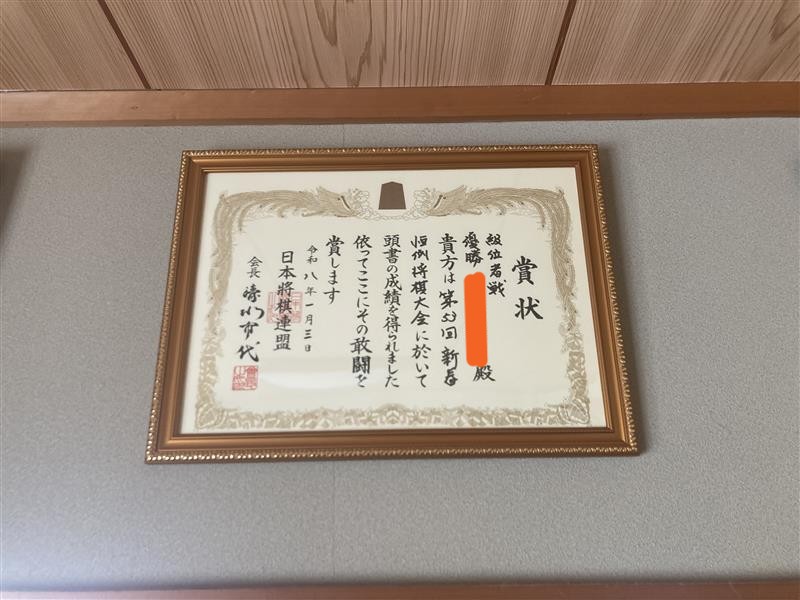 賞状
級位者戦
優勝 殿
貴方は第53回新春
恒例将棋大会に於いて
頭書の成績を得られました
依ってここにその敢闘を
賞します
令和八年一月三日
日本將棋連盟
会長 清水市代